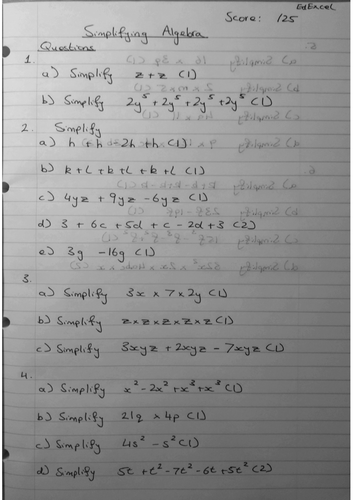 EdExcel
Score: /25
Simplifying Algebra
Questions
1.
a) Simplify z + z (1)
b) Simplify 2y⁵ + 2y⁵ + 2y⁵ + 2y⁵ (1)
2. Simplify
a) h + h + 2h + h (1)
b) k + l + k + l + k + l (1)
c) 4yz + 9yz - 6yz (1)
d) 3 + 6c + 5d + c - 2d + 3 (2)
e) 3g - 16g (1)
3.
a) Simplify 3x × 7 × 2y (1)
b) Simplify z × z × z × z × z (1)
c) Simplify 3xyz + 2xyz - 7xyz (1)
4.
a) Simplify x² - 2x² + x³ + x³ (1)
b) Simplify 21q × 4p (1)
c) Simplify 4s² - s² (1)
d) Simplify 5t + t² - 7t² - 6t + 5t² (2)